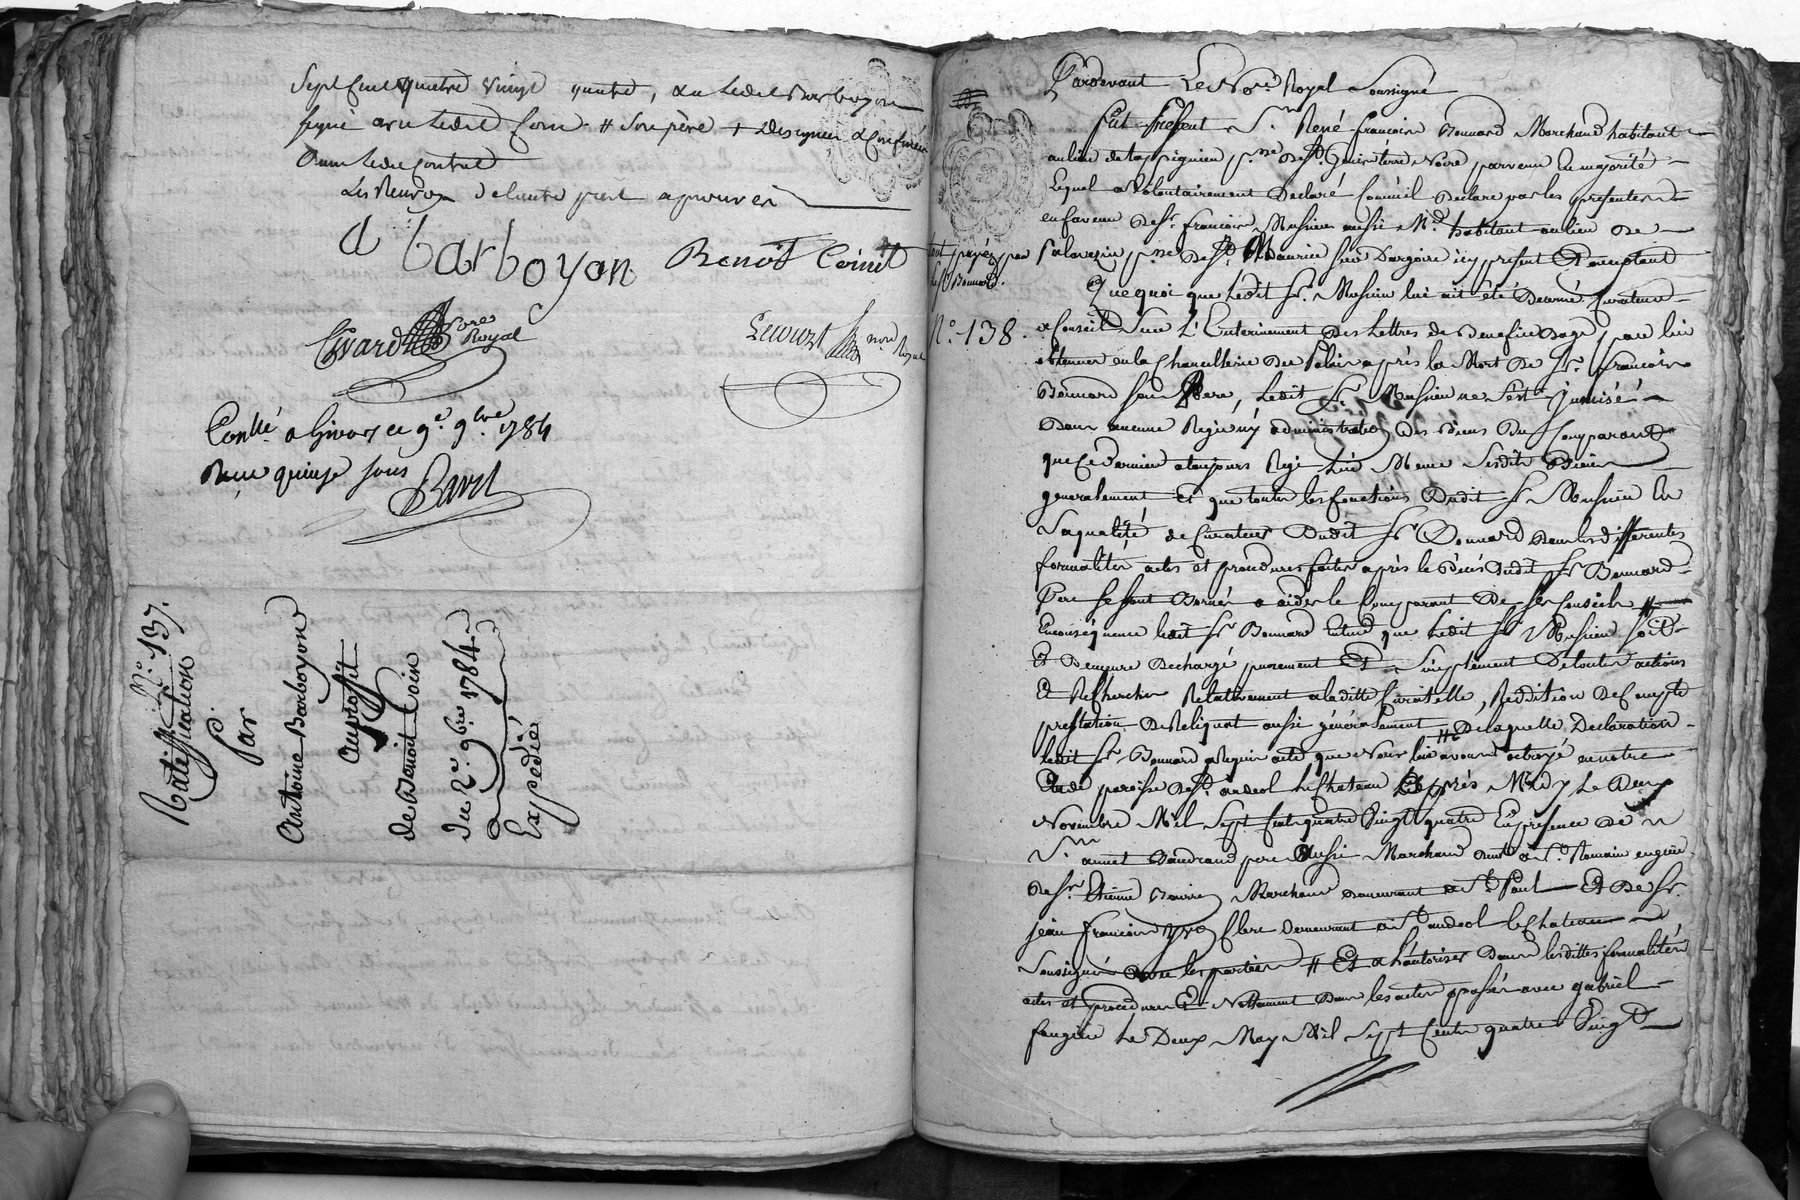 Sept Cent quatre vingt quatre, & Ledit Barboyon
signé avec Ledit Coin # Son père +
dans Ledit Contrat
Les Renvoy de l'autre part approuvés
a barboyon Benoît Coinit
Evrard Nore Royal
Lecourt nore Royal
Conllé a Givors ce 9e 9bre 1784
Reçu quinze sous
Bavet
No. 137.
Ratiffication
Par
Antoine Barboyon
au profit
de Benoit Coin
Du 2e. 9bre 1784
Expédié
Pardevant Le Nore Royal Soussigné
Fut Present Sr. René francois Bonnard Marchand habitant
au lieu de parvenu En majorité
Lequel a Volontairement Declaré Comme il Declare par les presentes
en faveur De Sr. francois Mussieu aussi Md. habitant au lieu De
tout payé par
led. Sr Bonnard.
psse De St. Maurice sur Dargoire icy present Et acceptant
Que quoi que Ledit Sr. Mussieu lui ait été Donné Curateur
No. 138.
& Conseil Sur L'Enterinement Des Lettres de Benefice D'age, par lui
obtenues en la Chancellerie Du Palais après la Mort De Sr. francois
Bonnard Son Pere, Ledit Sr. Mussieu ne S'est immisé
Dans aucune Regie ny administration Des Biens Du Comparant
que Ce dernier a toujours Regi Lui Meme Sesdits Biens
generalement Et que toutes les fonctions Dudit Sr. Mussieu En
Sa qualité de Curateur Dudit Sr. Bonnard Dans les differentes
formalités actes et procedures faites après le Décès Dudit Sr Bonnard
Pere Se sont Bornés a aider le Comparant De Ses Conseils #
Enconséquence Ledit Sr. Bonnard Entend que Ledit Sr. Mussieu soit
Et Demeure Dechargé purement Et Simplement De toutes actions
Et Recherches Relativement a laditte Curatelle, Reddition De Compte
prestation De Reliquat aussi généralement # De laquelle Declaration
ledit Sr. Bonnard a Requis acte que Nous lui avons octroyé en notre
Etude paroisse De St. andeol Le Chateau Après Midy Le Deux
Novembre Mil Sept Cent quatre Vingt quatre En presence De
Sr. annet Baudrand pere Aussi Marchand Demt a St. Romain en giers
De Sr. Etienne Marchand Demeurant a St. Paul Et De Sr.
jean francois Clerc Demeurant a St. andeol le Chateau
Soussignés avec les parties # Et a L'autoriser Dans lesdittes formalités
actes et procedures Et Nottamment Dans les actes passés avec gabriel
faugier Le Deux May Mil Sept Cent quatre Vingt